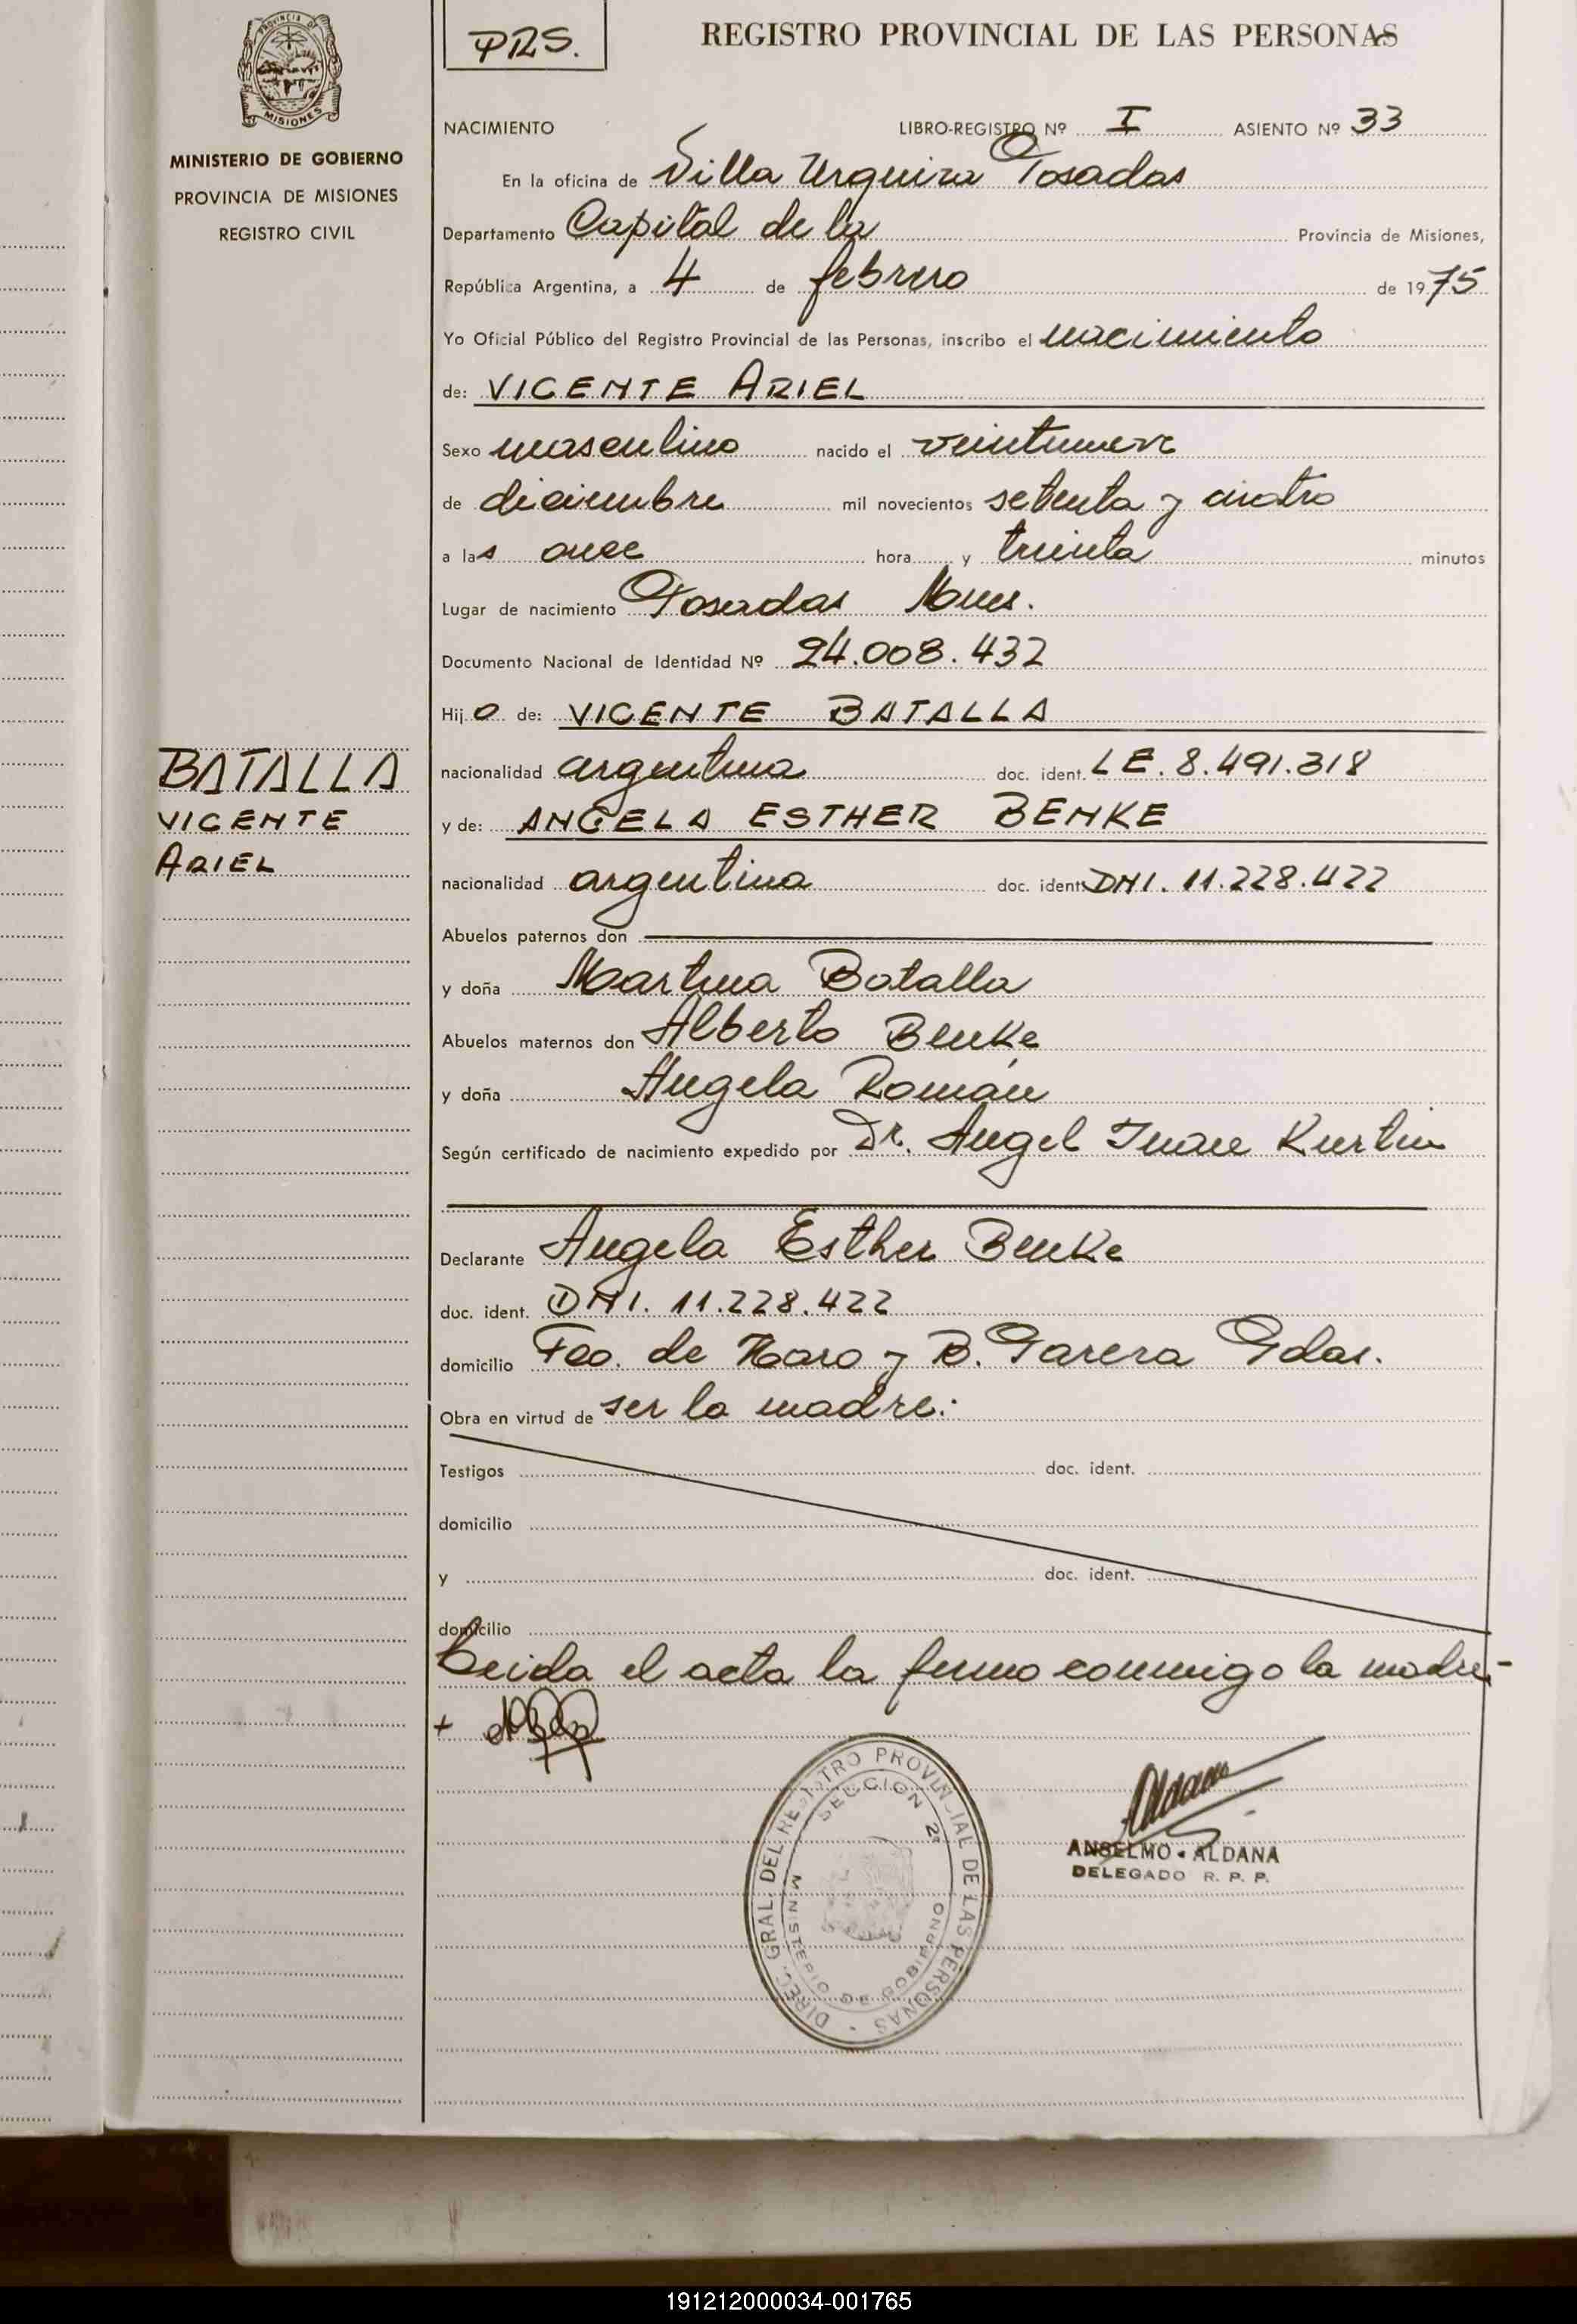 PROVINCIA DE
MISIONES
MINISTERIO DE GOBIERNO
PROVINCIA DE MISIONES
REGISTRO CIVIL
BATALLA
VICENTE
ARIEL
PRS.
REGISTRO PROVINCIAL DE LAS PERSONAS
NACIMIENTO LIBRO-REGISTRO Nº I ASIENTO Nº 33
En la oficina de Villa Urquiza Posadas
Departamento Capital de la Provincia de Misiones,
República Argentina, a 4 de febrero de 1975
Yo Oficial Público del Registro Provincial de las Personas, inscribo el nacimiento
de: VICENTE ARIEL
Sexo masculino nacido el veintinueve
de diciembre mil novecientos setenta y cuatro
a las once hora y treinta minutos
Lugar de nacimiento Posadas Mnes.
Documento Nacional de Identidad Nº 24.008.432
Hijo de: VICENTE BATALLA
nacionalidad argentina doc. ident. LE. 8.491.318
y de: ANGELA ESTHER BENKE
nacionalidad argentina doc. ident. DNI. 11.228.422
Abuelos paternos don
y doña Martina Batalla
Abuelos maternos don Alberto Benke
y doña Angela Román
Según certificado de nacimiento expedido por Dr. Angel Juan Kurtin
Declarante Angela Esther Benke
doc. ident. DNI. 11.228.422
domicilio Fco. de Haro y B. Parera Pdas.
Obra en virtud de ser la madre.
Testigos doc. ident.
domicilio
y doc. ident.
domicilio
Leida el acta la firma conmigo la madre-
DIREC. GRAL. DEL REGISTRO PROVINCIAL DE LAS PERSONAS
SECCION 2ª
MINISTERIO DE GOBIERNO
Aldana
ANSELMO ALDANA
DELEGADO R. P. P.
191212000034-001765